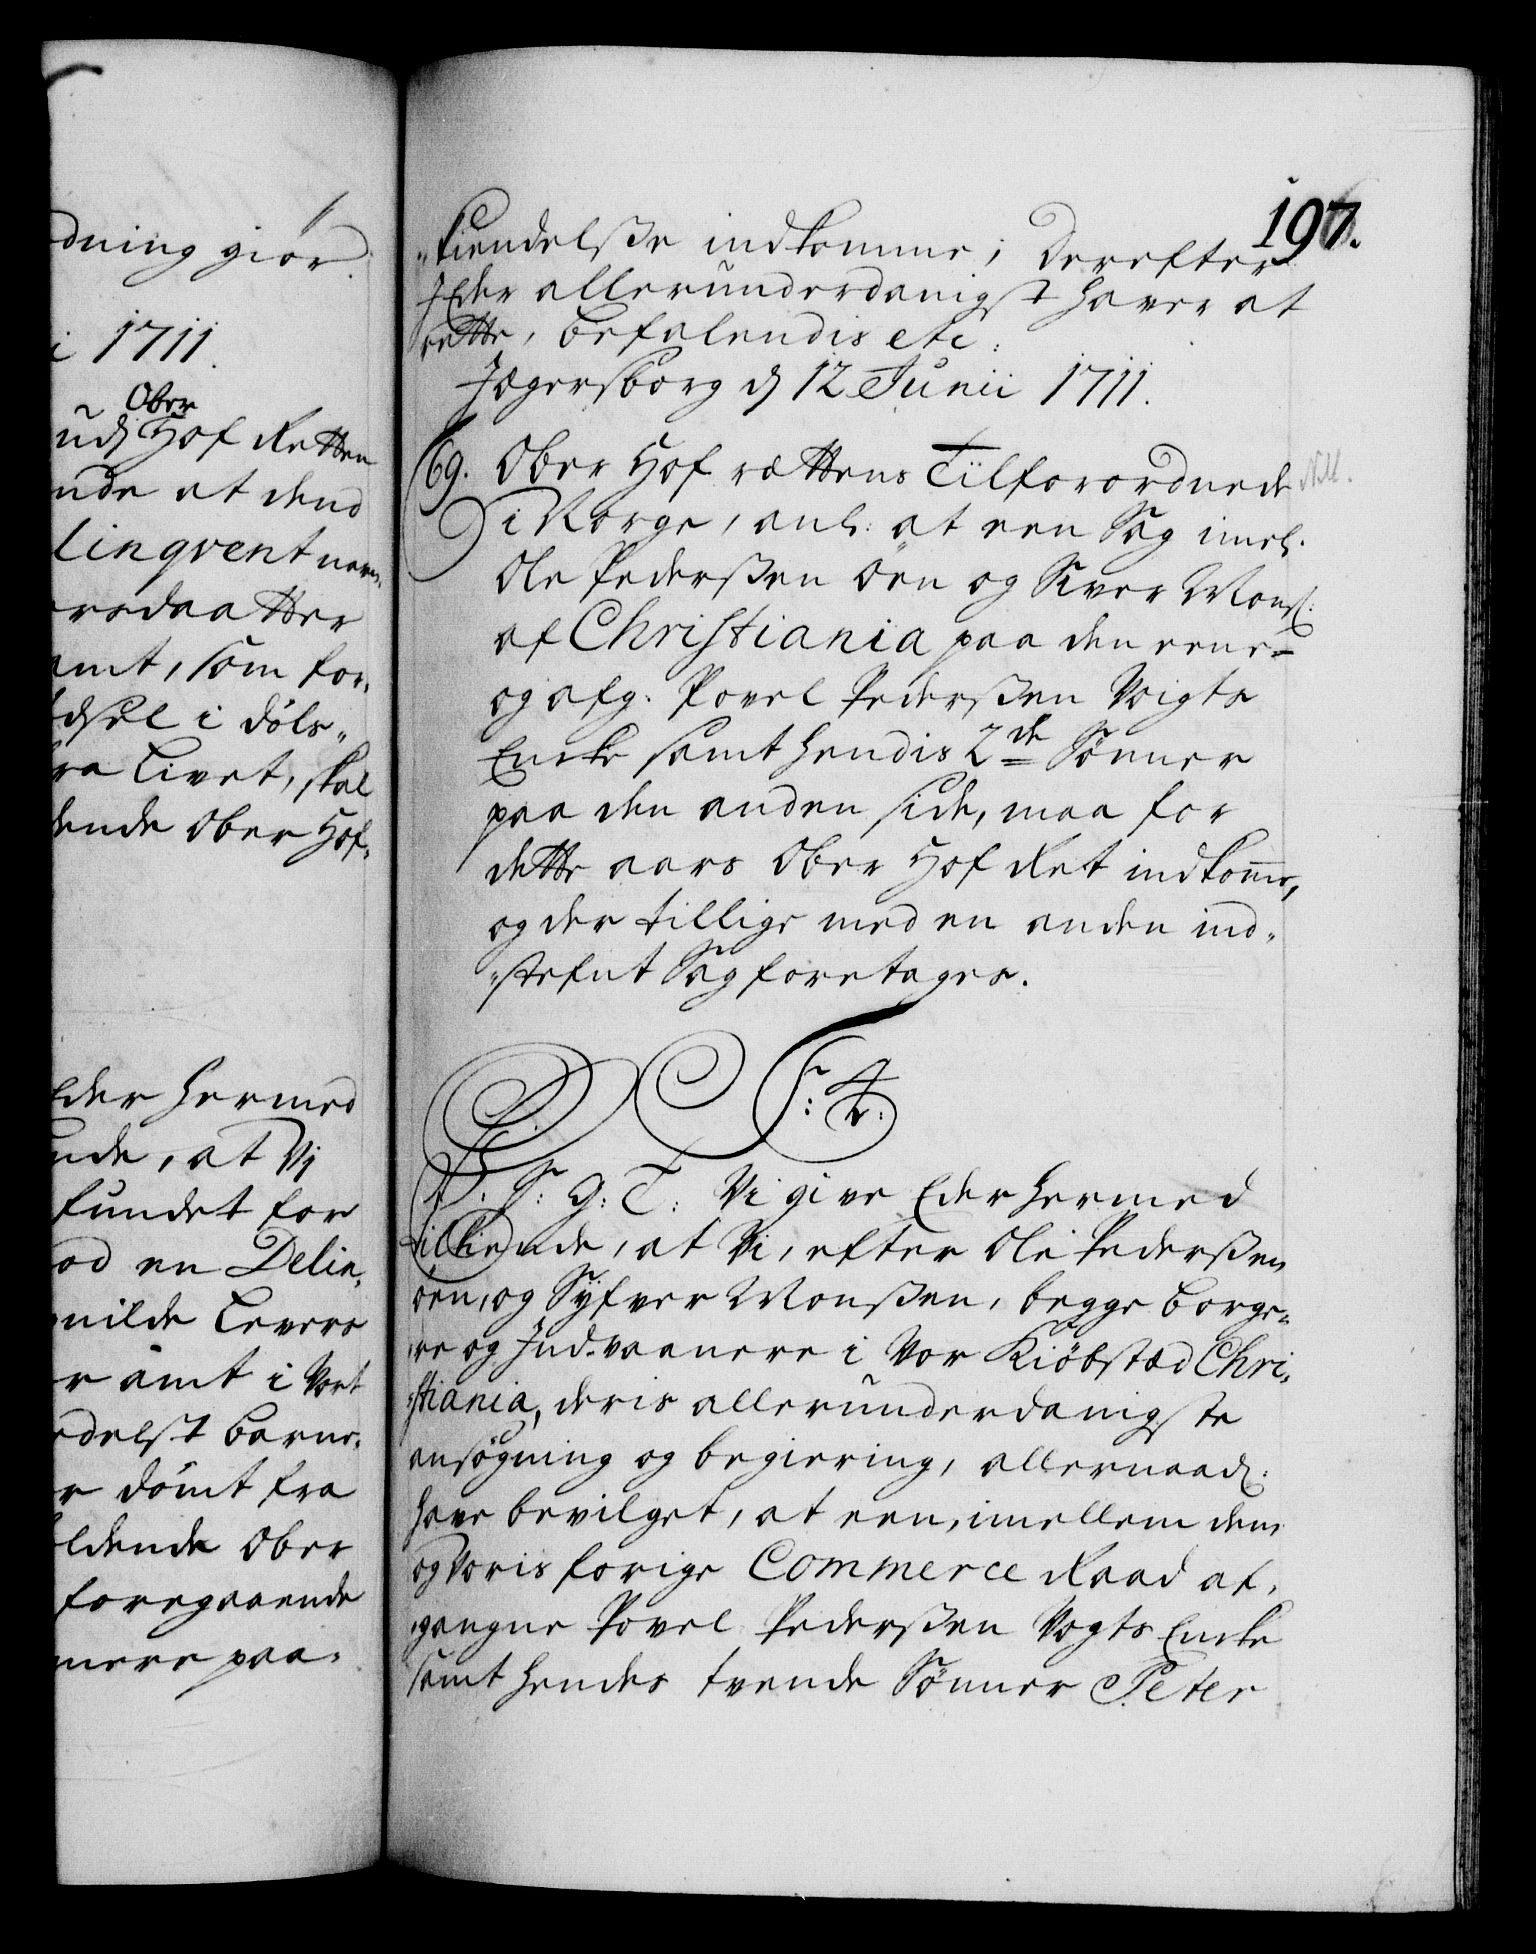 dning giør.
i 1711.
Ober
ud Hof Retten
nde at dend
linqvent nav-
ersdaatter
amt, som for-
dsel i döls-
fra Livet, skal
dende Ober Hof-
Eder hermed
nde, at Vj
fundet for
od en Delin-
unilde Levers
r amt i Vort
edelst barne-
r dömt fra
ldende Ober
foregaaende
mere paa-
197.
"kiendelsse indkomme; Derefter
I Eder allerunderdanigst haver at
rette, befalendis etc:
Jægersborg d 12 Junii 1711.
69. Ober Hof rættens Tilforordnede
i Norge, anl: at een Sag imel.
Ole Pederssen Öen og Siver Monss:
af Christiania paa den eene-
og afg. Povel Pederssen Voigts
Encke samt hendis 2de Sönner
paa den anden side, maa for
dette aars Ober Hof Ret indkomme,
og der tillige med en anden ind-
"stefnt Sag foretages.
F: 4.
V. S: G: T: Vi give Eder hermed
tilkiende, at Vi, efter Ole Pederssen
öen, og Syfver Monssen, begge borge-
re og Jndvaanere i Vor Kiöbstæd Chri-
"stiania, deris allerunderdanigste
ansögning og begiering, allernaad:
have bevilget, at een, imellem dem
og Voris forige Commerce Raad af-
gangne Povel Pederssen Vogts Encke
samt hendes tvende Sönner Peter